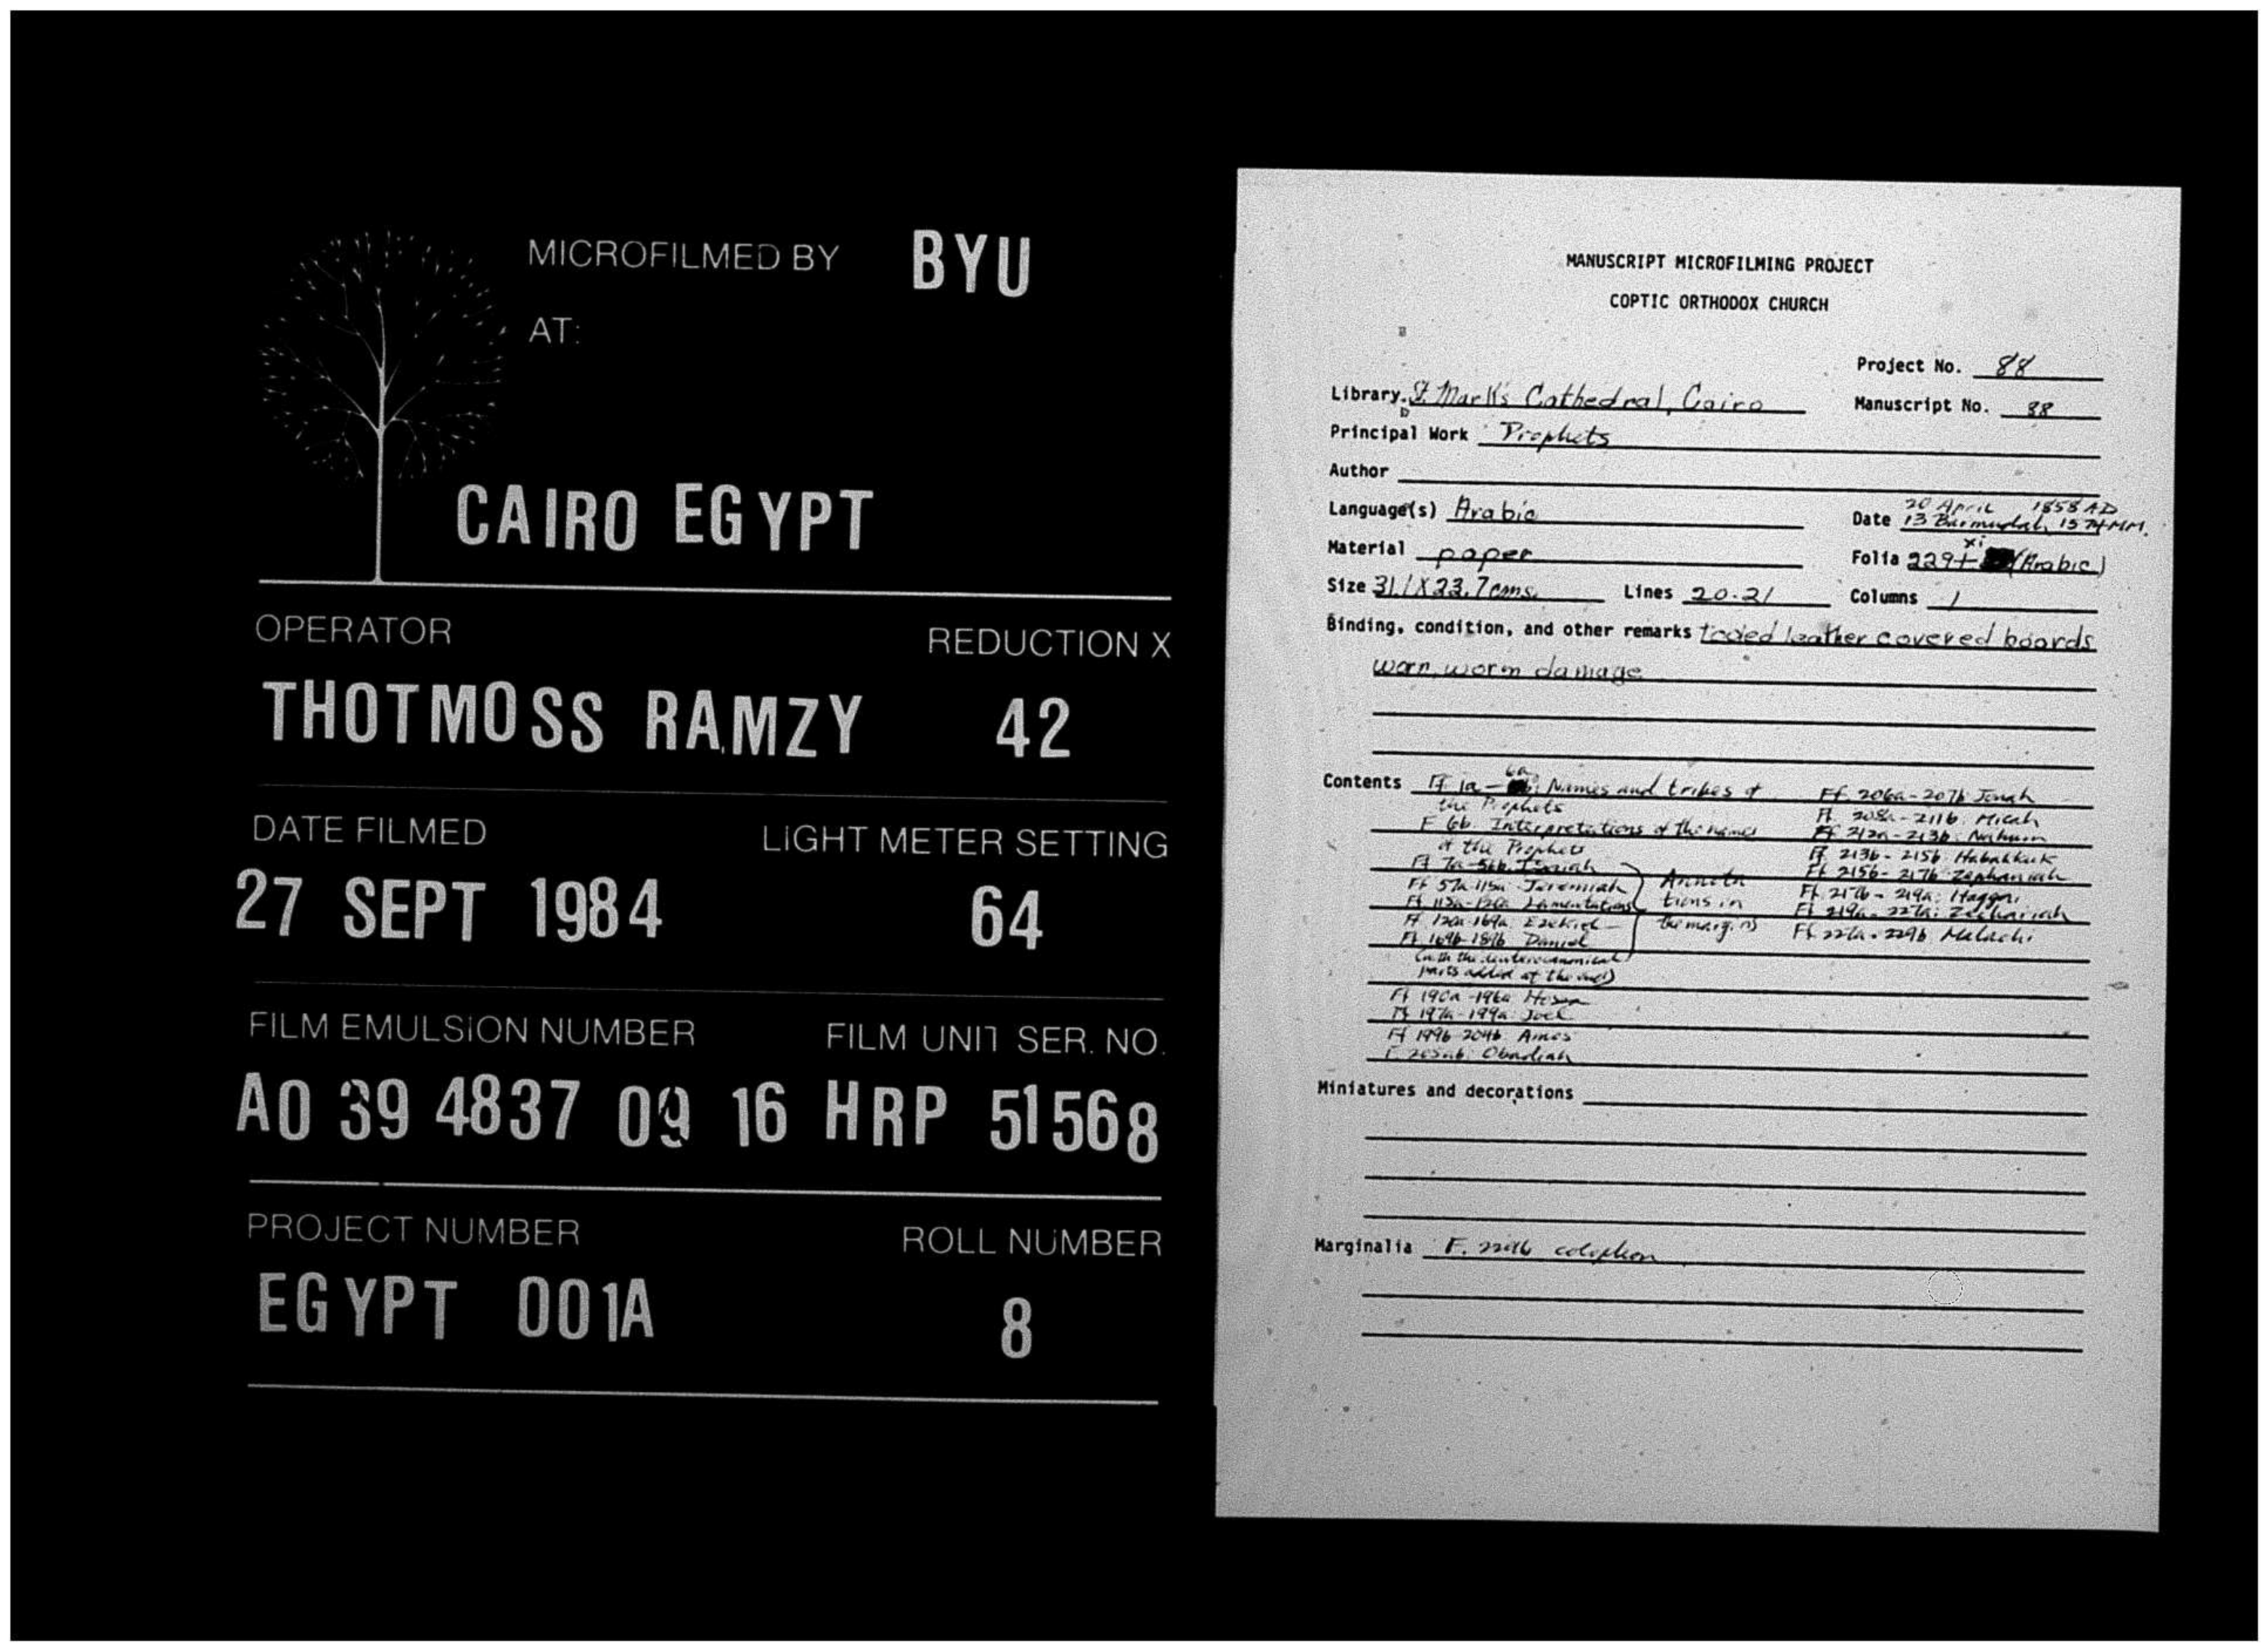 MICROFILMED BY BYU
AT:
CAIRO EGYPT
OPERATOR REDUCTION X
THOTMOSS RAMZY 42
DATE FILMED LIGHT METER SETTING
27 SEPT 1984 64
FILM EMULSION NUMBER FILM UNIT SER. NO.
A0 39 4837 09 16 HRP 51568
PROJECT NUMBER ROLL NUMBER
EGYPT 001A 8
MANUSCRIPT MICROFILMING PROJECT
COPTIC ORTHODOX CHURCH
Project No. 88
Library St. Mark's Cathedral, Cairo Manuscript No. 88
Principal Work Prophets
Author
Language(s) Arabic Date 20 April 1858 AD
13 Barmudah, 1574 MM.
Material paper Folia 229 + xi (Arabic)
Size 31.1 X 23.7 cms. Lines 20-21 Columns 1
Binding, condition, and other remarks tooled leather covered boards
worn, worm damage
Contents Ff 1a - 6a: Names and tribes of
the Prophets
F 6b. Interpretations of the names
of the Prophets
Ff 7a-56b. Isaiah
Ff 57a-115a Jeremiah
Ff 115a-120a Lamentations
Ff 120a-169a Ezekiel
Ff 169b-189b Daniel
(with the deuterocanonical
parts added at the end)
Annota
tions in
the margins
Ff 190a-196a Hosea
Ff 197a-199a Joel
Ff 199b-204b Amos
F 205ab: Obadiah
Ff. 206a-207b Jonah
Ff. 208a-211b: Micah
Ff 212a-213b: Nahum
Ff. 213b-215b: Habakkuk
Ff 215b-217b: Zephaniah
Ff. 217b-219a: Haggai
Ff 219a-227a: Zechariah
Ff 227a-229b Malachi
Miniatures and decorations
Marginalia F. 229b colophon